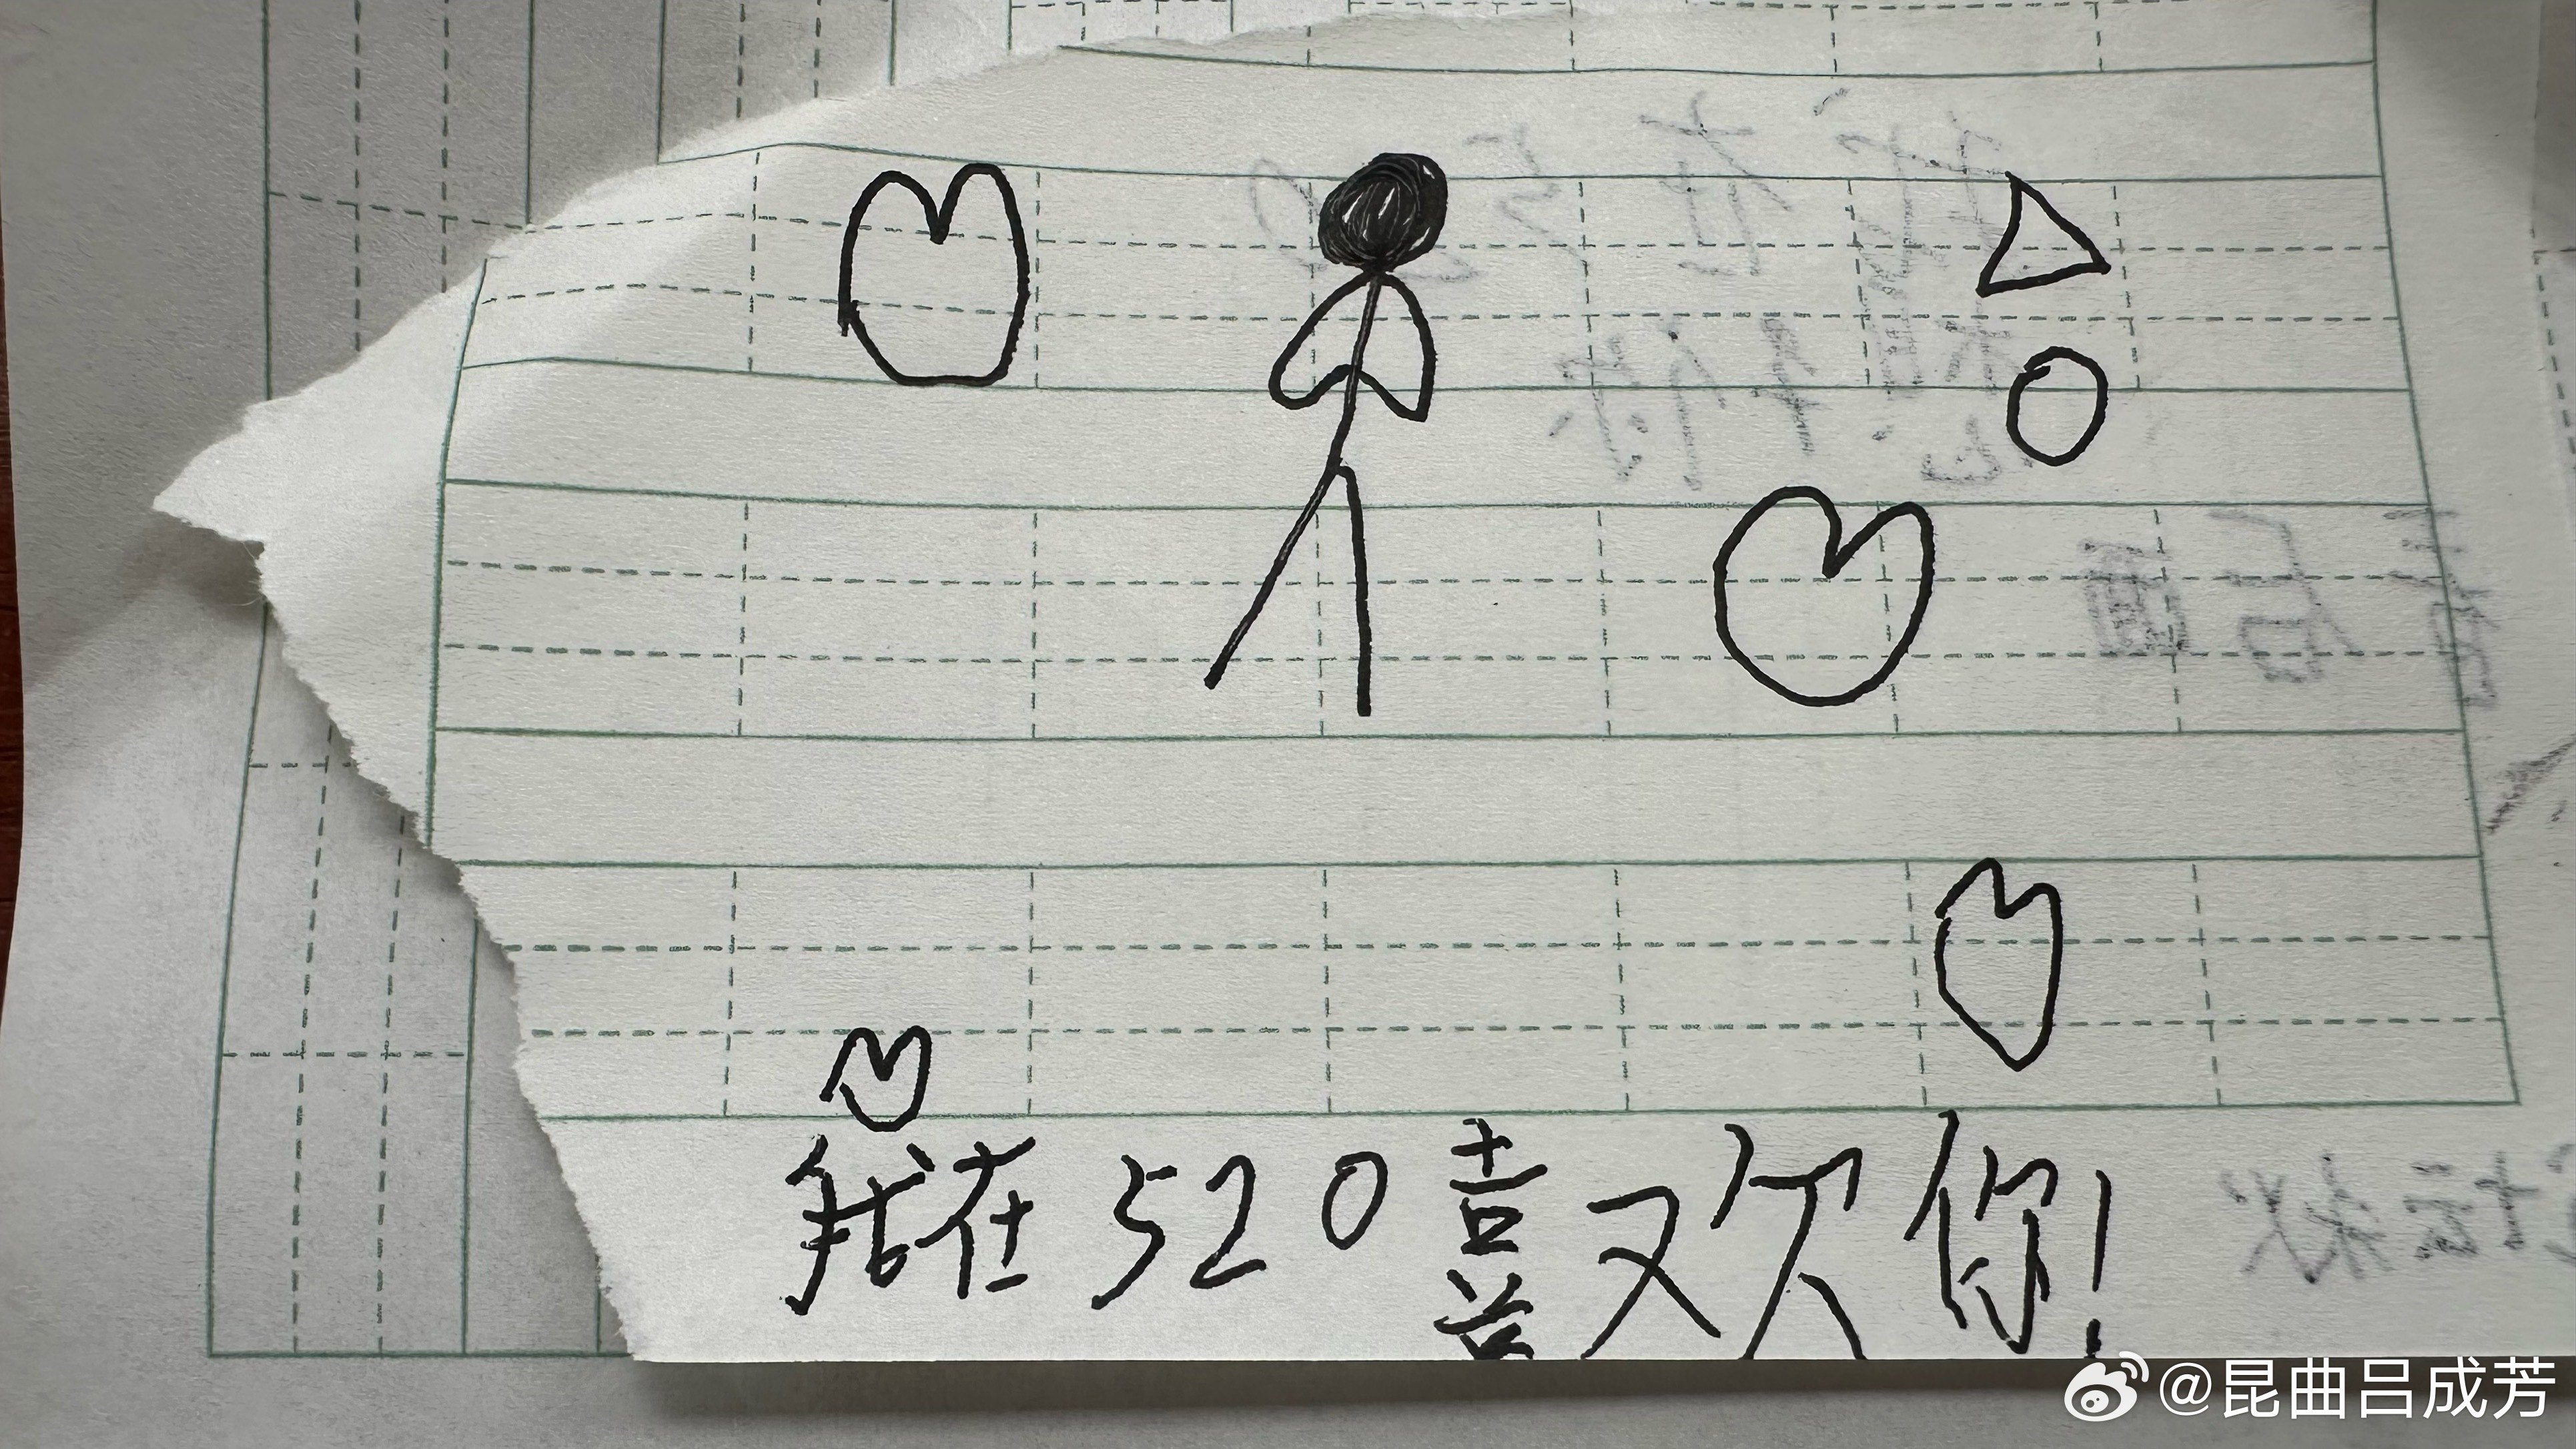 我在520喜欢你!
@昆曲吕成芳